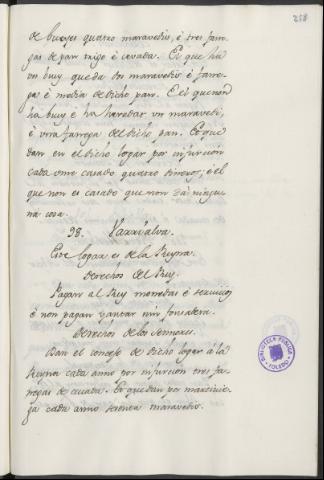 258
de bueyes quatro maravedis, è tres fane-
gas de pan trigo è cevada. Et que hà
un buey que da dos maravedis è fane-
ga è media de dicho pan. E el que non
ha buy è ha heredat un maravedi,
è una fanega del dicho pan. Et que
dan en el dicho logar por infurcion
cada ome casado quatro dineros, è el
que non es casado que non dà ningu-
na cosa.
98. Varrialva.
Este logar es de la Reyna.
Derechos del Rey.
Pagan al Rey monedas è servicios
è non pagan yantar nin fonsadera.
Derechos de los Sennores.
Dan el concejo de dicho logar à la
Reyna cada anno por infurcion tres fa-
negas de cevada. Et que dan por martinie-
ga cada anno setenta maravedis.
BIBLIOTECA PUBLICA
TOLEDO